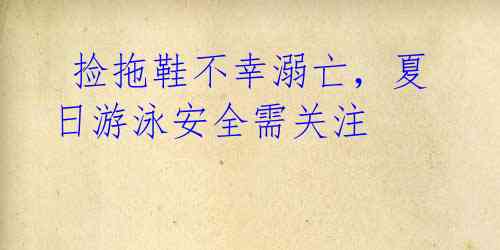 捡拖鞋不幸溺亡，夏
日游泳安全需关注